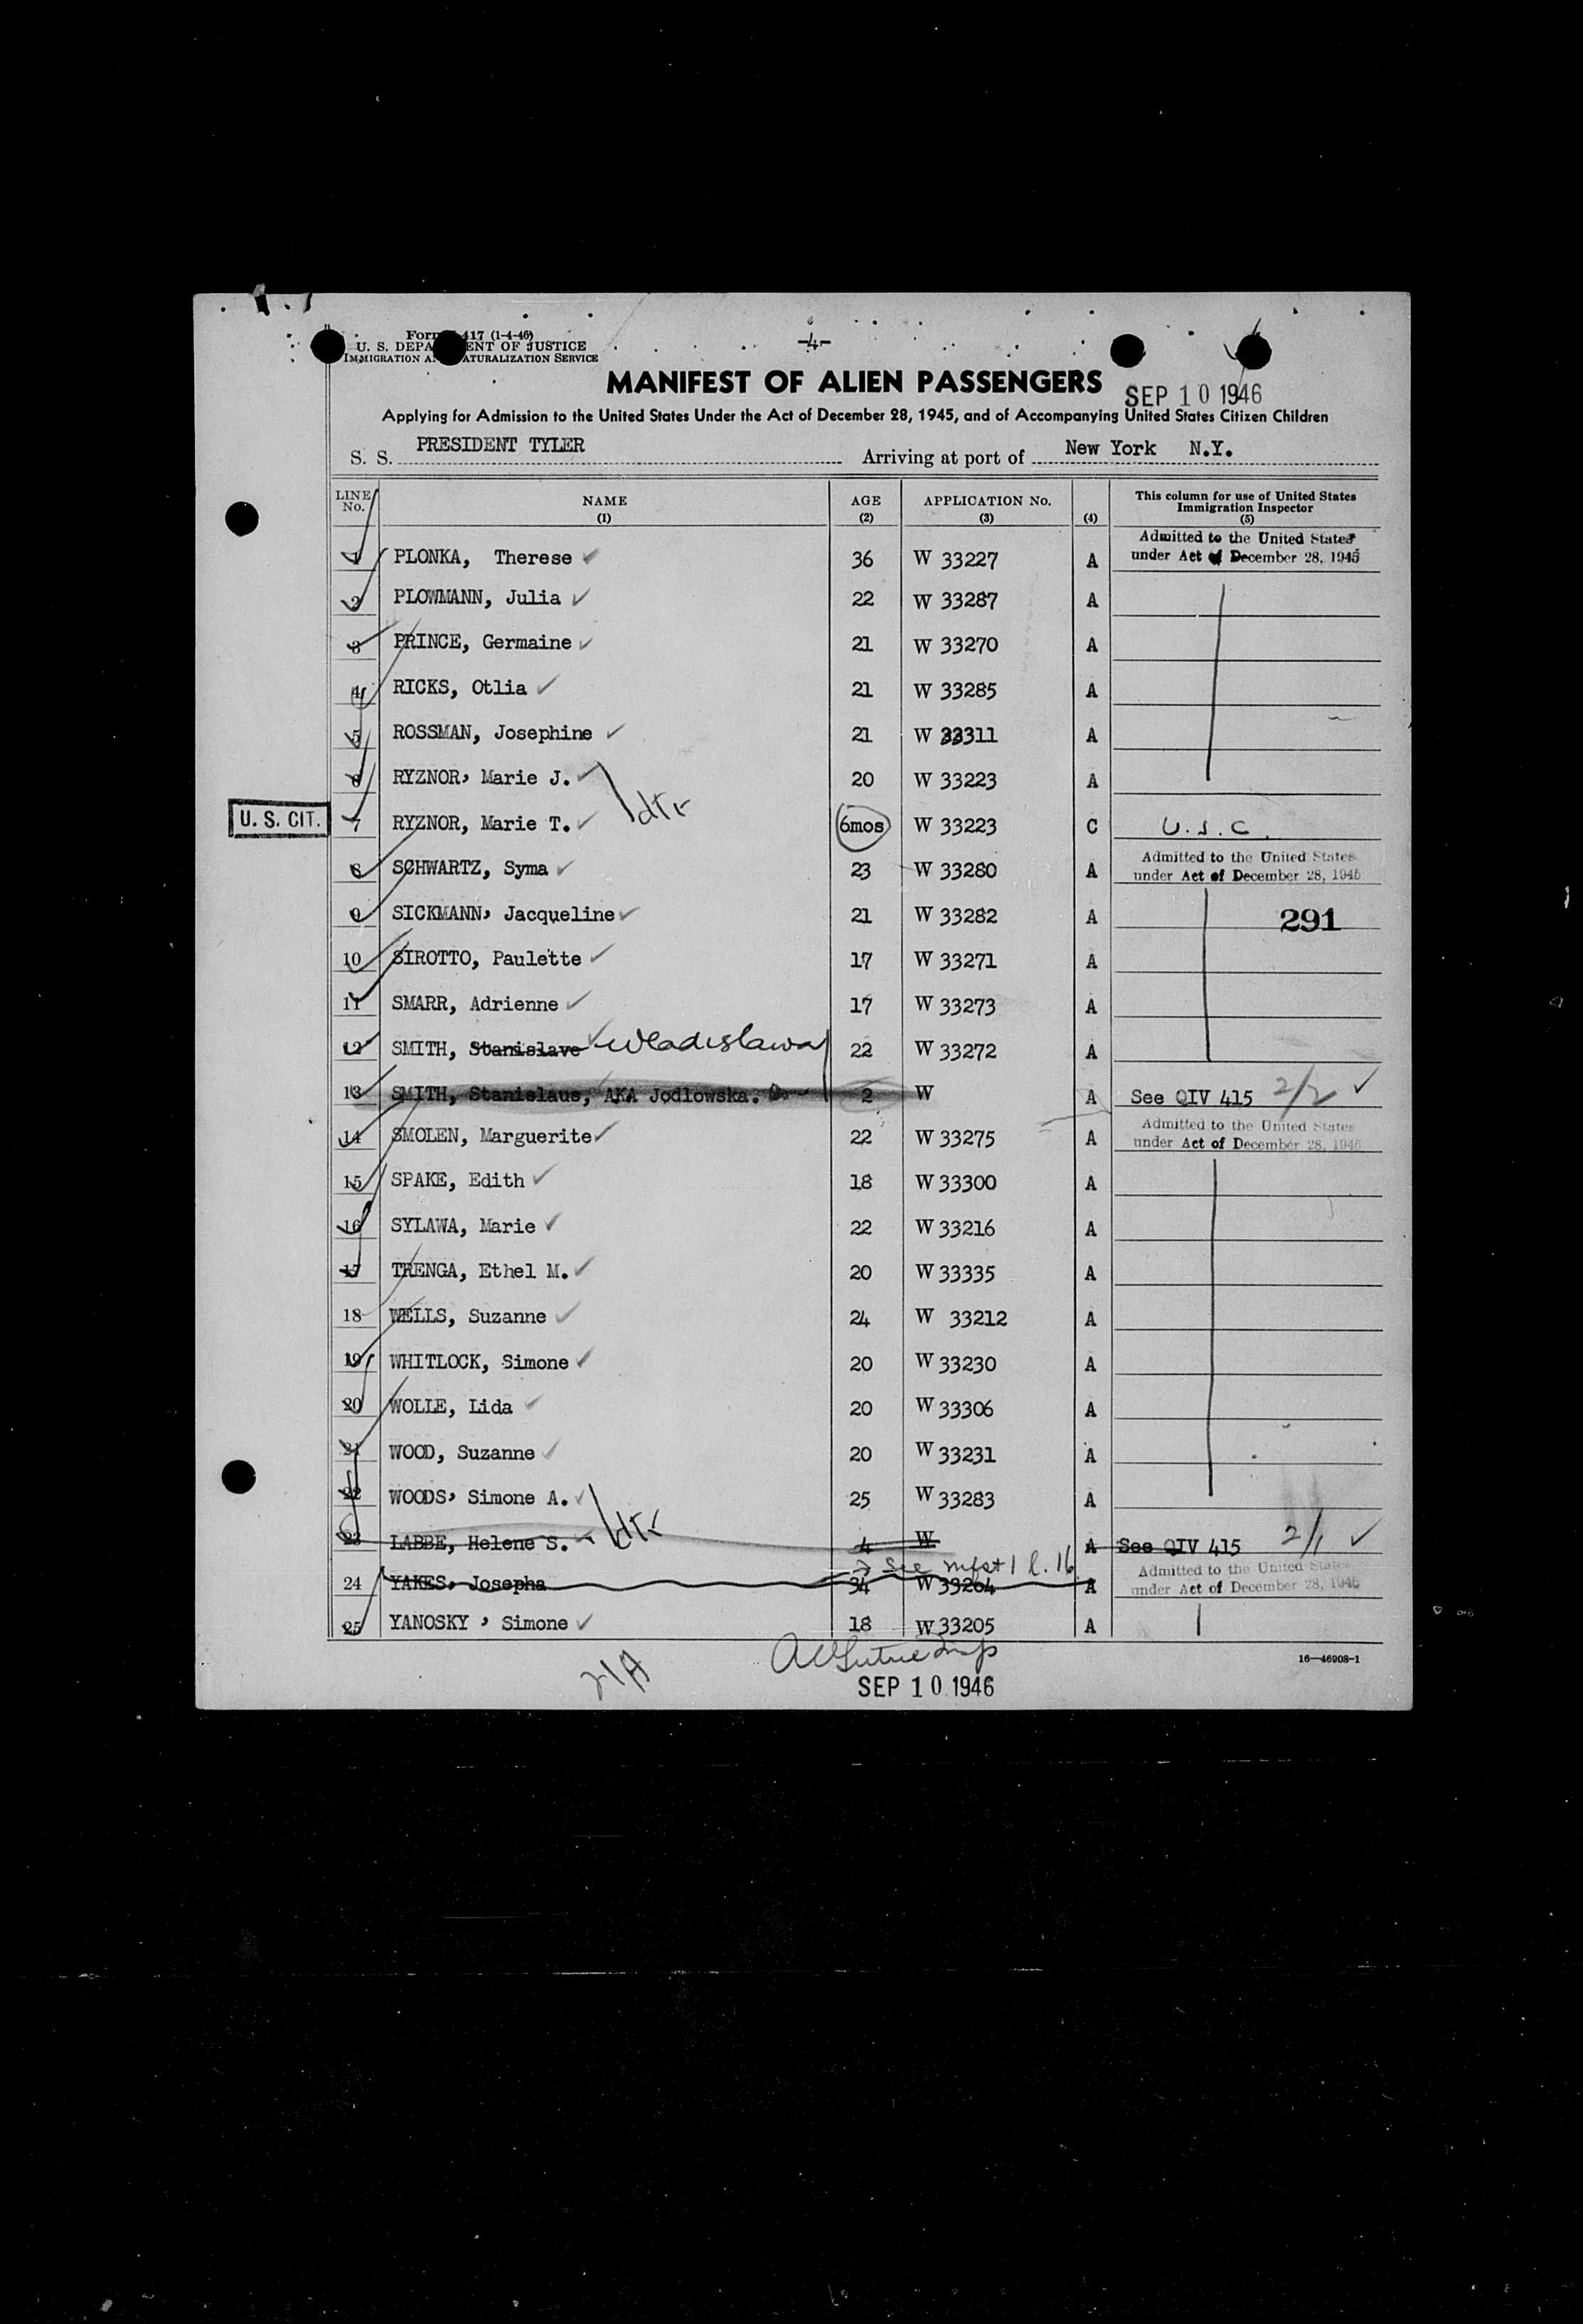 -4-
Form 417 (1-4-46)
U. S. DEPA ENT OF JUSTICE
IMMIGRATION A ATURALIZATION SERVICE
MANIFEST OF ALIEN PASSENGERS
SEP 10 1946
Applying for Admission to the United States Under the Act of December 28, 1945, and of Accompanying United States Citizen Children
S. S. PRESIDENT TYLER Arriving at port of New York N.Y.
LINE No. NAME (1) AGE (2) APPLICATION No. (3) (4) This column for use of United States Immigration Inspector (5)
Admitted to the United States
1 PLONKA, Therese ✓ 36 W 33227 A under Act of December 28, 1945
2 PLOWMANN, Julia ✓ 22 W 33287 A
3 PRINCE, Germaine ✓ 21 W 33270 A
4 RICKS, Otlia ✓ 21 W 33285 A
5 ROSSMAN, Josephine ✓ 21 W 33311 A
6 RYZNOR, Marie J. ✓ 20 W 33223 A
dtr
U. S. CIT. 7 RYZNOR, Marie T. ✓ 6mos W 33223 C U.S.C.
Admitted to the United States
8 SCHWARTZ, Syma ✓ 23 W 33280 A under Act of December 28, 1945
9 SICKMANN, Jacqueline ✓ 21 W 33282 A 291
10 SIROTTO, Paulette ✓ 17 W 33271 A
11 SMARR, Adrienne ✓ 17 W 33273 A
12 SMITH, Stanislave ✓ Wladislawa 22 W 33272 A
13 SMITH, Stanislaus, AKA Jodlowska. 2 W A See QIV 415 2/2 ✓
Admitted to the United States
14 SMOLEN, Marguerite ✓ 22 W 33275 A under Act of December 28, 1945
15 SPAKE, Edith ✓ 18 W 33300 A
16 SYLAWA, Marie ✓ 22 W 33216 A
17 TRENGA, Ethel M. ✓ 20 W 33335 A
18 WELLS, Suzanne ✓ 24 W 33212 A
19 WHITLOCK, Simone ✓ 20 W 33230 A
20 WOLLE, Lida ✓ 20 W 33306 A
21 WOOD, Suzanne ✓ 20 W 33231 A
22 WOODS, Simone A. ✓ 25 W 33283 A
dtr
23 LABBE, Helene S. 4 W A See QIV 415 2/1 ✓
See mfst 1 l. 16 Admitted to the United States
24 YAKES, Josepha 34 W 33264 A under Act of December 28, 1945
25 YANOSKY, Simone ✓ 18 W 33205 A
16—46908-1
SEP 10 1946